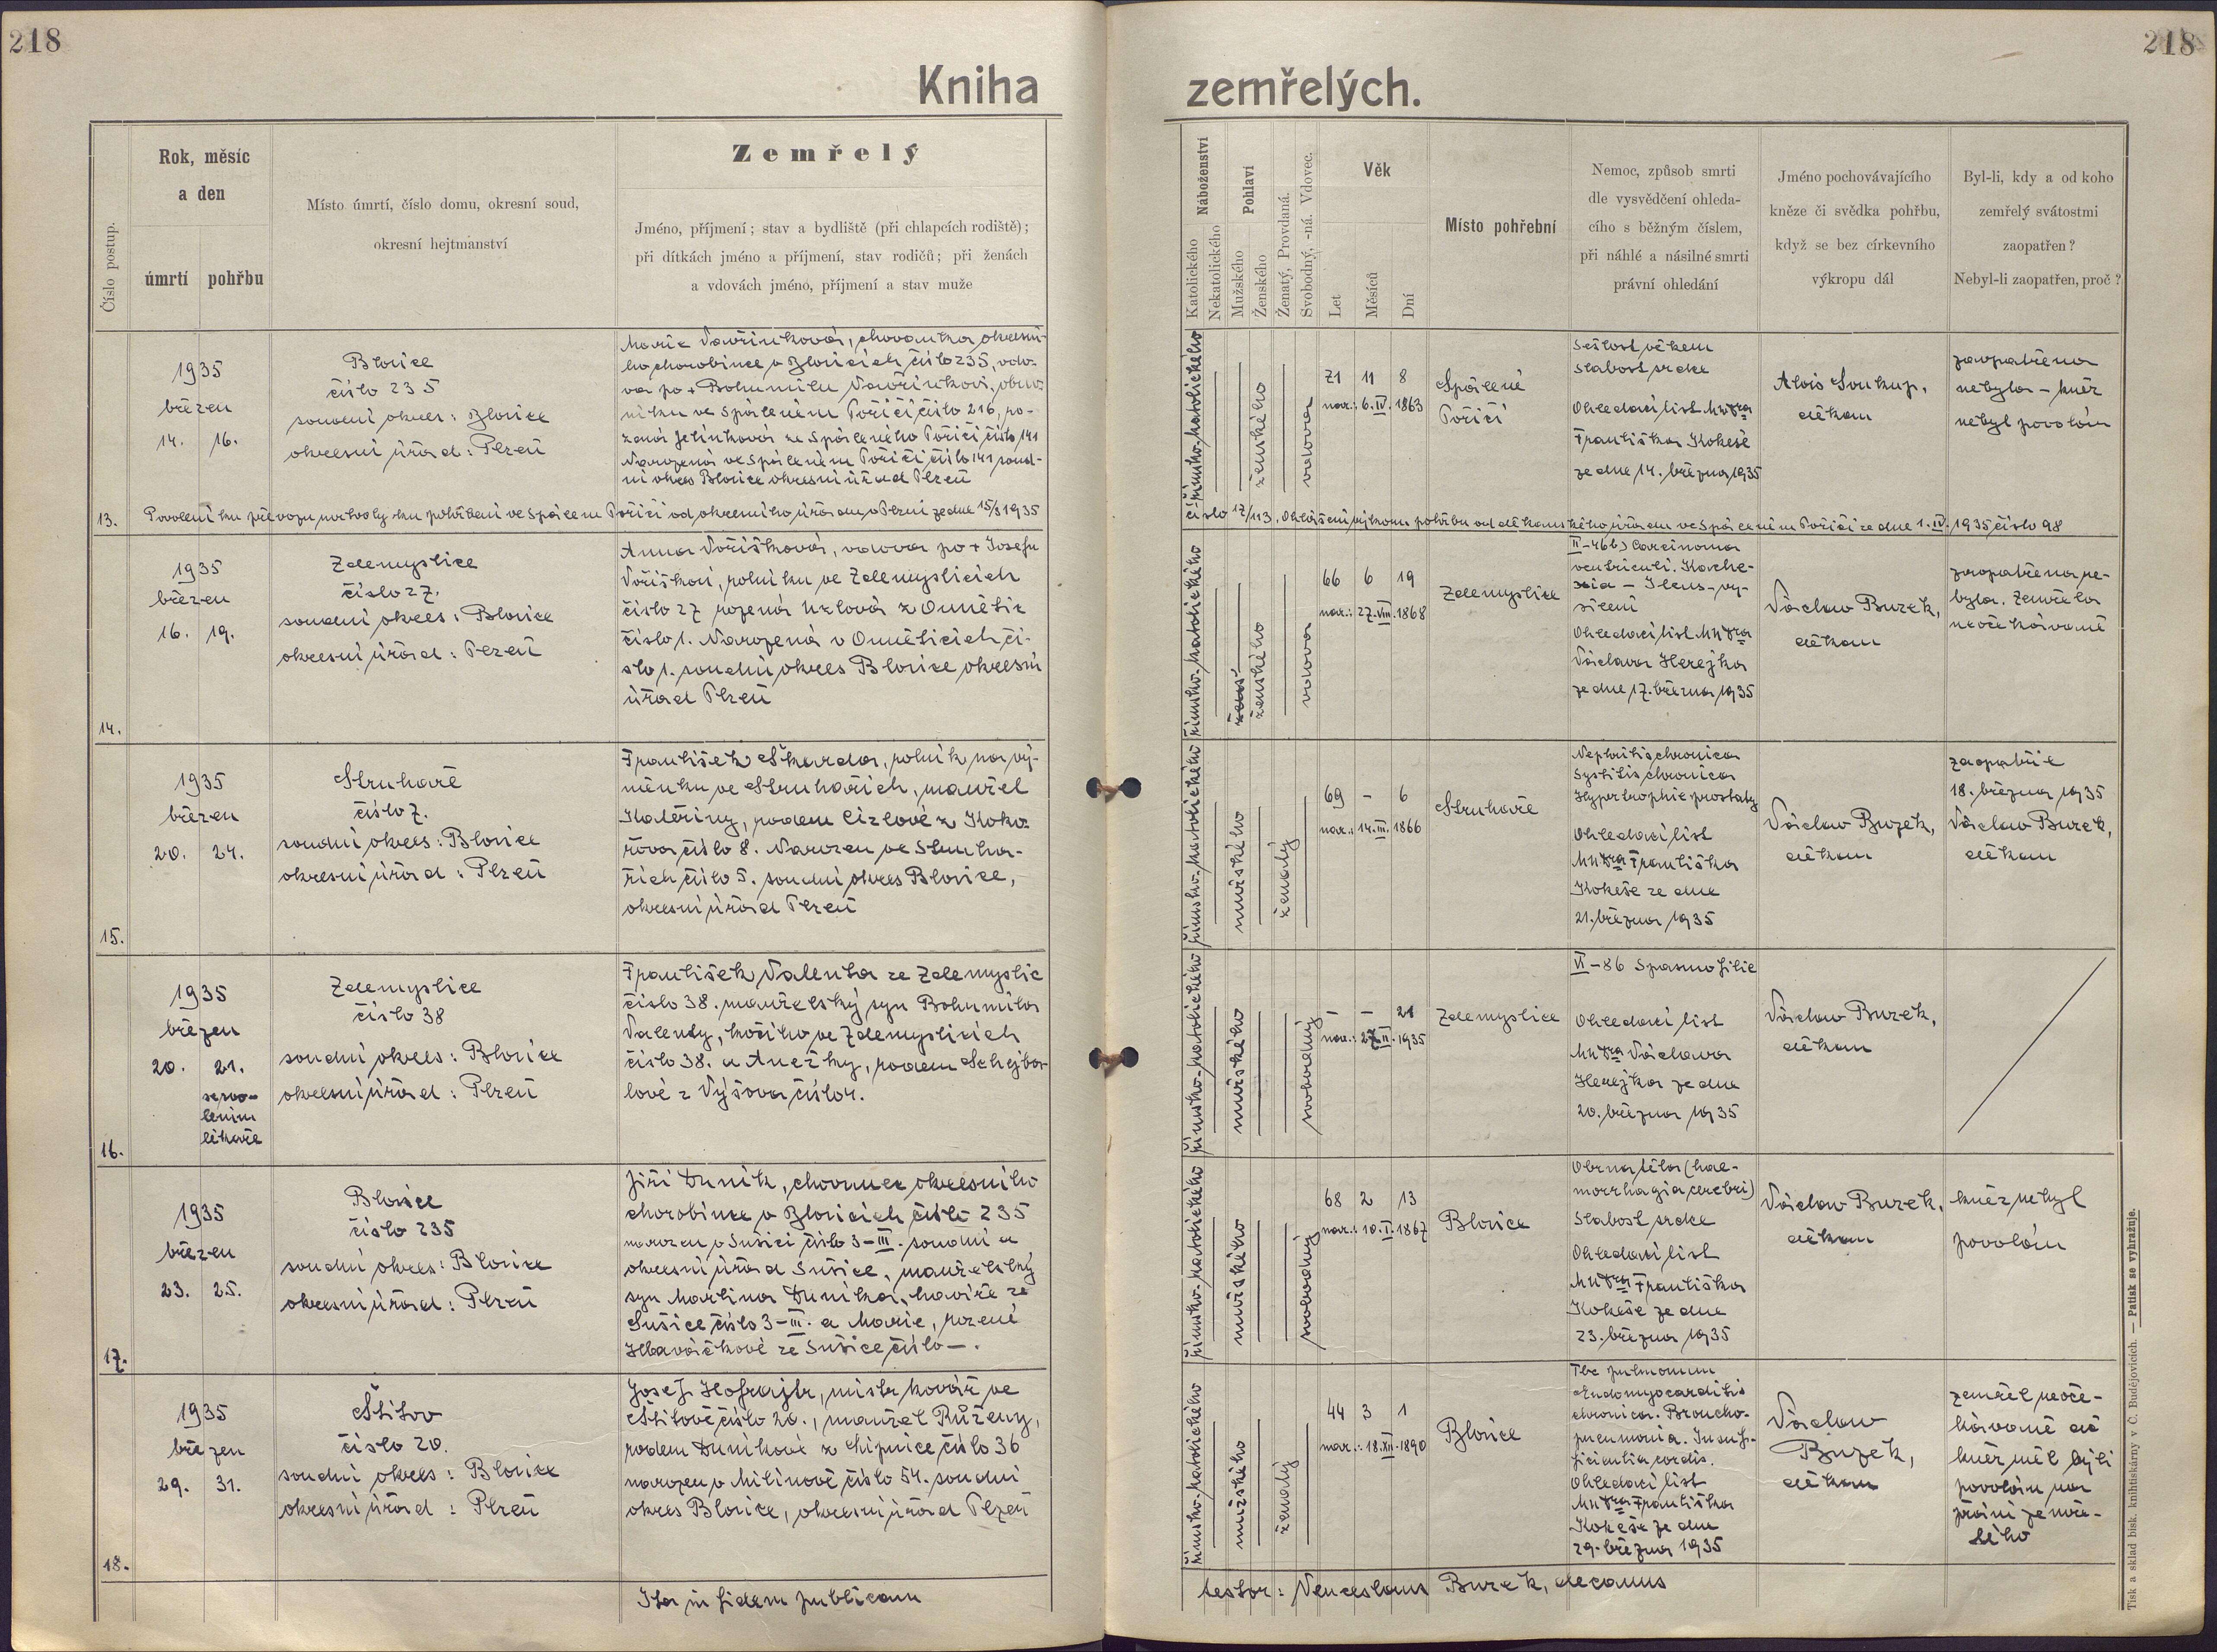 218
218
Kniha
zemřelých.
Číslo postup.
Rok, měsíc
a den
úmrtí
pohřbu
Místo úmrtí, číslo domu, okresní soud,
okresní hejtmanství
Zemřelý
Jméno, příjmení; stav a bydliště (při chlapcích rodiště);
při dítkách jméno a příjmení, stav rodičů; při ženách
a vdovách jméno, příjmení a stav muže
Náboženství
Katolického
Nekatolického
Pohlaví
Mužského
Ženského
Ženatý, Provdaná.
Svobodný, -ná. Vdovec.
Věk
Let
Měsíců
Dní
Místo pohřební
Nemoc, způsob smrti
dle vysvědčení ohleda-
cího s běžným číslem,
při náhlé a násilné smrti
právní ohledání
Jméno pochovávajícího
kněze či svědka pohřbu,
když se bez církevního
výkropu dál
Byl-li, kdy a od koho
zemřelý svátostmi
zaopatřen?
Nebyl-li zaopatřen, proč?
13.
1935
březen
14. 16.
Blovice
číslo 235
soudní okres: Blovice
okresní úřad: Plzeň
Marie Vavřinková, chovanka okresní-
ho chorobince v Blovicích číslo 235, vdo-
va po + Bohumilu Vavřinkovi, obuv-
níku ve Spáleném Poříčí číslo 216, ro-
zená Jelínková ze Spáleného Poříčí číslo 141
Narozená ve Spáleném Poříčí číslo 141 soud-
ní okres Blovice okresní úřad Plzeň
římsko-katolického
ženského
vdova
71 11 8
nar.: 6. IV. 1863
Spálené
Poříčí
Sešlost věkem
slabost srdce
Ohledací list MUDra
Františka Kokeše
ze dne 14. března 1935
Alois Soukup,
děkan
zaopatřena
nebyla – kněz
nebyl povolán
Povolení ku převozu mrtvoly ku pohřbení ve Spáleném Poříčí od okresního úřadu v Plzni ze dne 15/3 1935
číslo 17/113. Ohlášení výkonu pohřbu od děkanského úřadu ve Spáleném Poříčí ze dne 1. IV. 1935 číslo 98
14.
1935
březen
16. 19.
Zdemyslice
číslo 27.
soudní okres: Blovice
okresní úřad: Plzeň
Anna Voříšková, vdova po + Josefu
Voříškovi, rolníku ve Zdemyslicích
číslo 27 rozená Uzlová z Ounětic
číslo 1. Narozená v Ouněticích čí-
slo 1. soudní okres Blovice okresní
úřad Plzeň
římsko-katolického
ženského
vdova
66 6 19
nar.: 27. VIII. 1868
Zdemyslice
II-46b) Carcinoma
ventriculi. Kache-
xia – Ileus – vy-
sílení
Ohledací list MUDra
Václava Herejka
ze dne 17. března 1935
Václav Burek,
děkan
zaopatřena ne-
byla. Zemřela
neočekávaně
15.
1935
březen
20. 24.
Struhaře
číslo 7.
soudní okres: Blovice
okresní úřad: Plzeň
František Škarda, rolník na vý-
měnku ve Struhařích, manžel
Kateřiny, rodem Cizlové z Koko-
řova číslo 8. Narozen ve Struha-
řích číslo 5. soudní okres Blovice,
okresní úřad Plzeň
římsko-katolického
mužského
ženatý
69 – 6
nar.: 14. III. 1866
Struhaře
Nephritis chronica
Systitis chronica
Hypertrophie prostaty
Ohledací list
MUDra Františka
Kokeše ze dne
21. března 1935
Václav Burek,
děkan
zaopatřil
18. března 1935
Václav Burek,
děkan
16.
1935
březen
20. 21.
se svo-
lením
lékaře
Zdemyslice
číslo 38
soudní okres: Blovice
okresní úřad: Plzeň
František Valenta ze Zdemyslic
číslo 38. manželský syn Bohumila
Valenty, kočího ve Zdemyslicích
číslo 38. a Anežky, rodem Schejba-
lové z Výšova číslo 1.
římsko-katolického
mužského
svobodný
– – 21
nar.: 27. II. 1935
Zdemyslice
VI-86 Spasmofilie
Ohledací list
MUDra Václava
Herejka ze dne
20. března 1935
Václav Burek,
děkan
17.
1935
březen
23. 25.
Blovice
číslo 235
soudní okres: Blovice
okresní úřad: Plzeň
Jiří Duník, chovanec okresního
chorobince v Blovicích číslo 235
narozen v Sušici číslo 3-III. soudní a
okresní úřad Sušice, manželský
syn Martina Duníka, havíře ze
Sušice číslo 3-III. a Marie, rozené
Hlaváčkové ze Sušice číslo –.
římsko-katolického
mužského
svobodný
68 2 13
nar.: 10. I. 1867
Blovice
Obrna těla (hae-
morrhagia cerebri)
Slabost srdce
Ohledací list
MUDra Františka
Kokeše ze dne
23. března 1935
Václav Burek,
děkan
kněz nebyl
povolán
18.
1935
březen
29. 31.
Štítov
číslo 20.
soudní okres: Blovice
okresní úřad: Plzeň
Josef Hofrajtr, mistr kovář ve
Štítově číslo 20., manžel Růženy,
rodem Duníkové z Chipnice číslo 36
narozen v Milínově číslo 54. soudní
okres Blovice, okresní úřad Plzeň
římsko-katolického
mužského
ženatý
44 3 1
nar.: 18. XII. 1890
Blovice
Tbc pulmonum
Endomyocarditis
chronica. Broncho-
pneumonia. Insuf-
ficientia cordis.
Ohledací list
MUDra Františka
Kokeše ze dne
29. března 1935
Václav
Burek,
děkan
zemřel neoče-
kávaně ač
kněz měl býti
povolán na
přání zemře-
lého
Ita in fidem publicam
testor: Venceslaus Burek, decanus
Tisk a sklad bisk. knihtiskárny v Č. Budějovicích. — Patisk se vyhražuje.